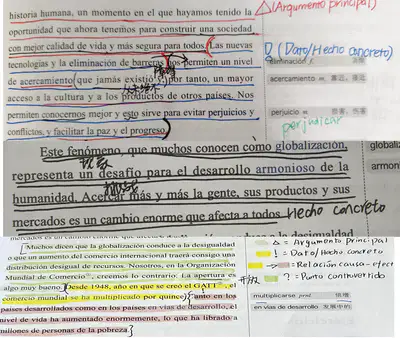 historia humana, un momento en el que hayamos tenido la
△(Argumento principal)
oportunidad que ahora tenemos para construir una sociedad
con mejor calidad de vida y más segura para todos. (Las nuevas
! (Dato/Hecho concreto)
tecnologías y la eliminación de barreras nos permiten un nivel
eliminación f.
de acercamiento (que jamás existió y, por tanto, un mayor
acercamiento m.
acceso a la cultura y a los productos de otros países. Nos
permiten conocernos mejor y esto sirve para evitar perjuicios y
perjuicio m.
conflictos, y facilitar la paz y el progreso.)
perjudicar
Este fenómeno, que muchos conocen como globalización,
globali
representa un desafío para el desarrollo armonioso de la
armon
挑战
humanidad. Acercar más y más la gente, sus productos y sus
mercados es un cambio enorme que afecta a todos. Hecho concreto
[Muchos dicen que la globalización conduce a la desigualdad
△ = Argumento Principal
o que un aumento del comercio internacional traerá consigo una
! = Dato/Hecho concreto
distribución desigual de recursos. Nosotros, en la Organización
→ = Relación causa-efect
Mundial de Comercio, creemos lo contrario: La apertura es
开放
? = Punto controvertido
algo muy bueno. [Desde 1948, año en que se creó el GATT, el
comercio mundial se ha multiplicado por quince.] Tanto en los
multiplicarse prnl. 倍增
países desarrollados como en los países en vías de desarrollo, el
en vías de desarrollo 发展中的
nivel de vida ha aumentado enormemente, lo que ha librado a
millones de personas de la pobreza.]